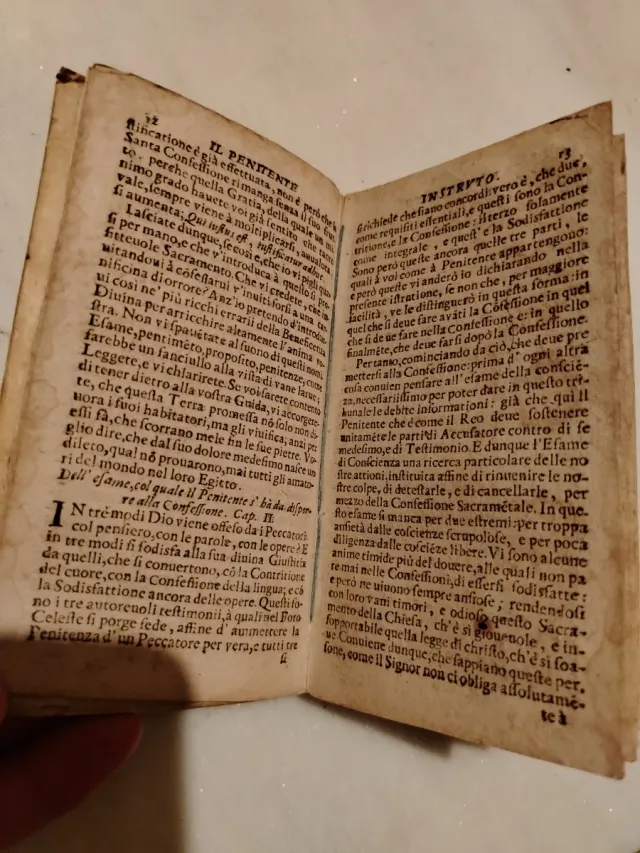 12
IL PENITENTE
stificatione è già effettuata, non è però che la
Santa Confessione rimanga senza il suo frut-
to: perche quella Gratia, della quale un mi-
nimo grado havete voi già sentito che tanto
vale, sempre viene à moltiplicarsi, annualità
si aumenta; Qui iustus est, iustificetur adhuc.
Lasciate dunque, se così è, che io vi pigli qua-
si per mano, e che v'introduca à questo si pro-
fitteuole Sacramento. Che vi credete, che in-
uitandoui à cōfessarui v'inuiti forsi à una car-
nificina d'orrore? Anz'io pretendo d'introdur-
ui così ne' più ricchi errarii della Beneficenza
Divina per arricchire altamente l'anima vo-
stra. Non vi spauētate al suono di questi nomi,
Esame, pentimēto, proposito, penitenze; come
farebbe un fanciullo alla vista di vane larue;
Leggete, e vi chiarirete. Se voi sarete contento
di tener dietro alla vostra Guida, vi accorgere-
te, che questa Terra promessa nō solo non di-
uora i suoi habitatori, ma gli viuifica; anzi per
essi fà, che scorrano mele fin le sue pietre. Vo-
glio dire, che dal suo dolore medesimo nasce un
diletto, qual nō prouarono, mai tutti gli amato-
ri del mondo nel loro Egitto.
Dell' esame, col quale il Penitente s' hà da dispor-
re alla Confessione. Cap. II.
IN trè modi Dio viene offeso da i Peccatori:
col pensiero, con le parole, con le opere? E
in tre modi si sodisfà alla sua divina Giustitia
da quelli, che si conuertono, cō la Contritione
del cuore, con la Confessione della lingua; e cō
la Sodisfattione ancora delle opere. Questi so-
no i tre autoreuoli testimonii, à quali nel Foro
Celeste si porge fede, affine d' ammettere la
Penitenza d' un Peccatore per vera, e tutti tre
si
13
INSTRVTO.
si richiede che siano concordi: vero è, che due,
come requisiti essentiali, e questi sono la Con-
tritione, e la Confessione: il terzo solamente
come integrale, e quest' è la Sodisfattione
Sono però queste ancora quelle tre parti, le
quali à voi come à Penitente appartengono:
e però queste vi anderò io dichiarando nella
presente istratione, se non che, per maggiore
facilità, ve le distinguerò in questa forma: in
quel che si deue fare avāti la Cōfessione in quel
che si de ue fare nella Confessione e: in quello
finalmēte, che deue farsi dopò la Confessione.
Per tanto, cominciando da ciò, che deue pre
mettersi alla Confessione: prima d' ogni altra
cosa conuien pensare all' esame della consciē-
za, necessariissimo per poter dare in questo tri-
bunale le debite informationi: già che qui il
Penitente che è come il Reo deve sostenere
unitamēte le parti di Accusatore contro di se
medesimo, e di Testimonio. E dunque l'Esame
di Conscienza una ricerca particolare delle no
stre attioni, instituita affine di rinuenire le no-
stre colpe, di detestarle, e di cancellarle, per
mezzo della Confessione Sacramētale. In que-
sto esame si manca per due estremi: per troppa
ansietà dalle coscienze scrupolose, e per poca
diligenza dalle cosciēze libere. Vi sono alcune
anime timide più del douere, alle quali non pa
re mai nelle Confessioni, di essersi sodisfatte:
e però ne uiuono sempre ansiose; rendendosi
con loro vani timori, e odioso questo Sacra-
mento della Chiesa, ch'è si giouenole, e in-
sopportabile quella legge di christo, ch'è si soa-
ue Conuiene dunque, che sappiano queste per.
sone, come il Signor non ci obliga assolutamē-
te à